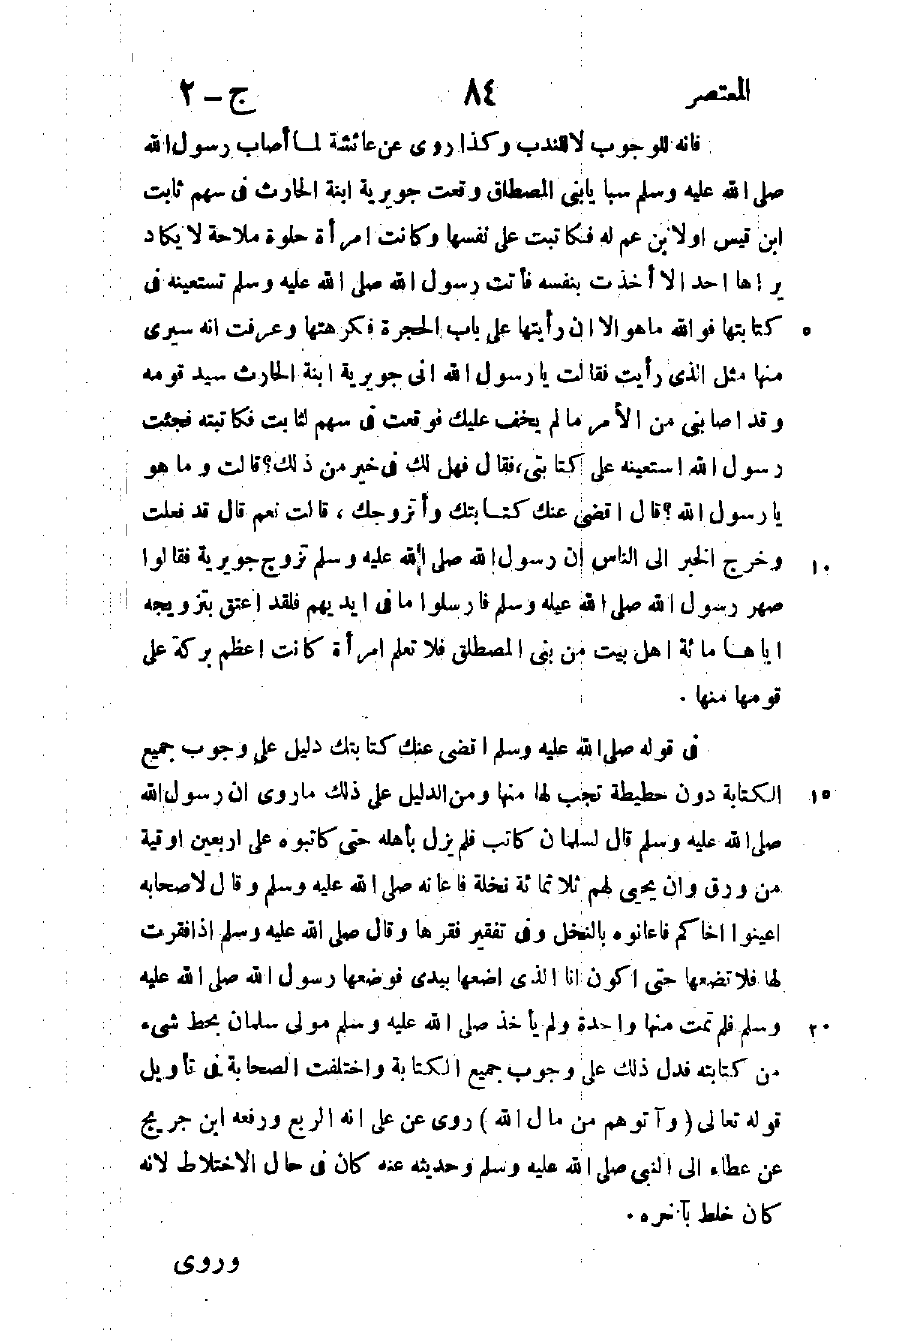 المعتصر ٨٤ ج - ٢
فانه للوجوب لا للندب وكذا روى عن عائشة لما أصاب رسول الله
صلى الله عليه وسلم سبا يا بنى المصطلق وقعت جويرية ابنة الحارث فى سهم ثابت
ابن قيس او لابن عم له فكاتبت على نفسها وكانت امرأة حلوة ملاحة لا يكاد
يراها احد الا أخذت بنفسه فأتت رسول الله صلى الله عليه وسلم تستعينه فى
٥ كتابتها فوالله ماهو الا ان رأيتها على باب الحجرة فكرهتها وعرفت انه سيرى
منها مثل الذى رأيت فقالت يا رسول الله انى جويرية ابنة الحارث سيد قومه
وقد اصابنى من الأمر مالم يخف عليك فوقعت فى سهم لثابت فكاتبته فجئت
رسول الله استعينه على كتابتى، فقال فهل لك فى خير من ذلك؟ قالت وما هو
يا رسول الله؟ قال اقضى عنك كتابتك وأتزوجك ، قالت نعم قال قد فعلت
١٠ وخرج الخبر الى الناس أن رسول الله صلى الله عليه وسلم تزوج جويرية فقالوا
صهر رسول الله صلى الله عيله وسلم فارسلوا ما فى ايديهم فلقد اعتق بتزويجه
اياها مائة اهل بيت من بنى المصطلق فلا تعلم امرأة كانت اعظم بركة على
قومها منها .
فى قوله صلى الله عليه وسلم اقضى عنك كتابتك دليل على وجوب جميع
١٥ الكتابة دون حطيطة تجب لها منها ومن الدليل على ذلك ماروى ان رسول الله
صلى الله عليه وسلم قال لسلمان كاتب فلم يزل بأهله حتى كاتبوه على اربعين اوقية
من ورق وان يحيى لهم ثلاثمائة نخلة فاعانه صلى الله عليه وسلم وقال لاصحابه
اعينوا اخاكم فاعانوه بالنخل وفى تفقير فقرها وقال صلى الله عليه وسلم اذا فقرت
لها فلا تضعها حتى اكون انا الذى اضعها بيدى فوضعها رسول الله صلى الله عليه
٢٠ وسلم فلم تمت منها واحدة ولم يأخذ صلى الله عليه وسلم مولى سلمان بحط شىء
من كتابته فدل ذلك على وجوب جميع الكتابة واختلفت الصحابة فى تأويل
قوله تعالى (وآتوهم من مال الله) روى عن على انه الربع ورفعه ابن جريج
عن عطاء الى النبى صلى الله عليه وسلم وحديثه عنه كان فى حال الاختلاط لانه
كان خلط بآخره .
وروى